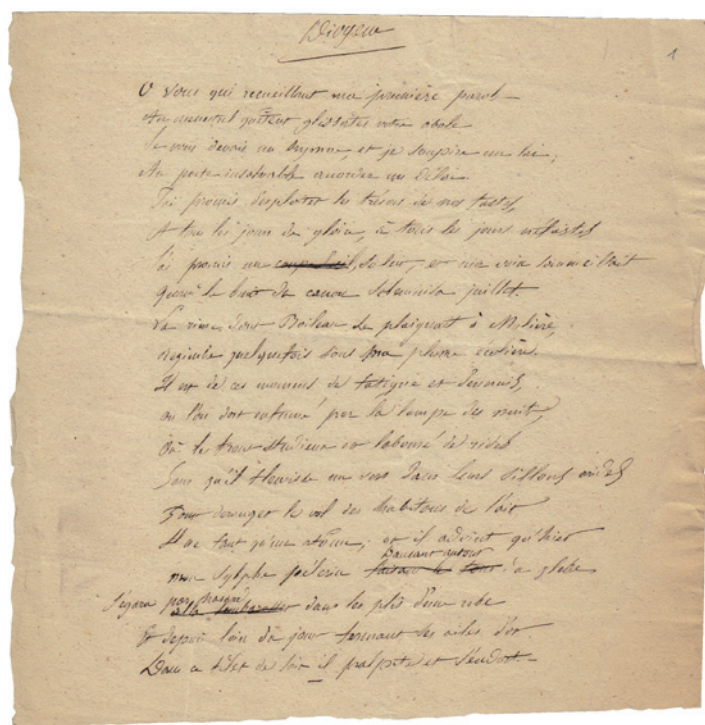 Diogène
1
O vous qui recueillant ma première parole
Au menestrel quêteur glissâtes votre obole
Je vous devais un hymne, et je soupire un lai;
Au poète insolvable accordez un délai.
J'ai promis d'exploiter les trésors de nos fastes,
A tous les jours de gloire, à tous les jours néfastes
J'ai promis un soleil, et ma voix sommeillait
Quand le bruit du canon solennisa juillet.
La rime, dont Boileau se plaignait à Molière,
Regimbe quelquefois sous ma plume écolière.
Il est de ces momens de fatigue et d'ennuis,
où l'on dort enfumé par la lampe des nuits,
Où le front studieux est labouré de rides
Sans qu'il fleurisse un vers dans leurs sillons arides
Pour déranger le vol des habitans de l'air
Il ne faut qu'un atome; et il advient qu'hier
Dansant autour
mon sylphe pélerin faisant le tour du globe
par hasard
S'égara dans les plis d'une robe
Et depuis loin du jour fermant ses ailes d'or
Dans ce filet de soie il palpite et s'endort.